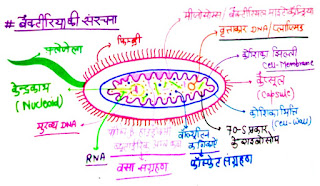 # बैक्टीरिया की संरचना
मीजोसोम्स/बैक्टीरियल माइटोकॉन्ड्रिया
वृत्ताकार DNA/प्लाज्मिड
फ्लैजेला
पिल्ली
कोशिका झिल्ली
Cell-Membrane
कैप्सूल
(Capsule)
केन्द्रकाय
(Nucleoid)
कोशिका भित्ति
(Cell-Wall)
मुख्य DNA
70-S प्रकार
के राइबोसोम
RNA
वसा संग्रहण
फॉस्फेट संग्रहण